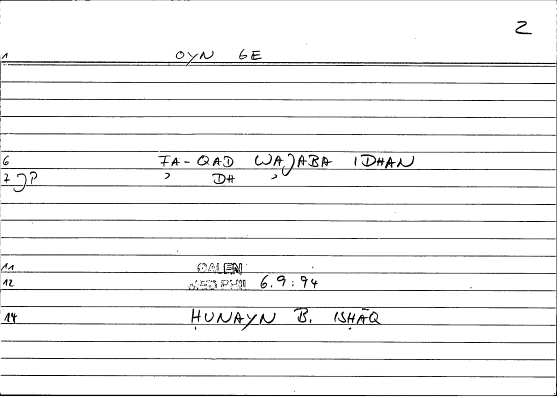 2
1 OYN GE
6 FA-QAD WAJABA IDHAN
7 JP ʾ DH ʾ
11 GALEN
12 MED PHII 6.9:94
14 ḤUNAYN B. ISḤĀQ